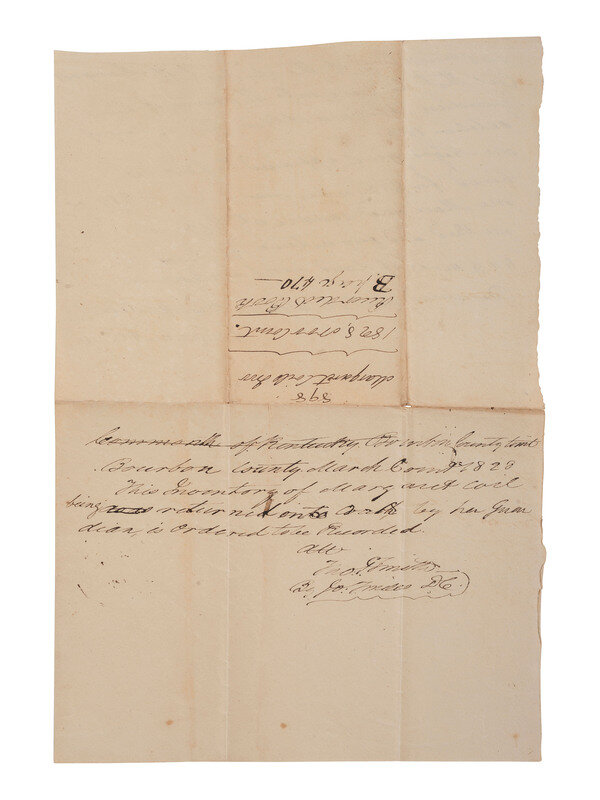 398
Margaret Coils Inv
1828, Nov Court.
Recorded Book
B, page 470
Commonth of Kentucky Bourbon County Court
Bourbon County March Court 1828
This Inventory of Margaret Coil
being was returned into Court by her Guar
dian, is ordered to be Recorded
Att
Tho. P. Smith